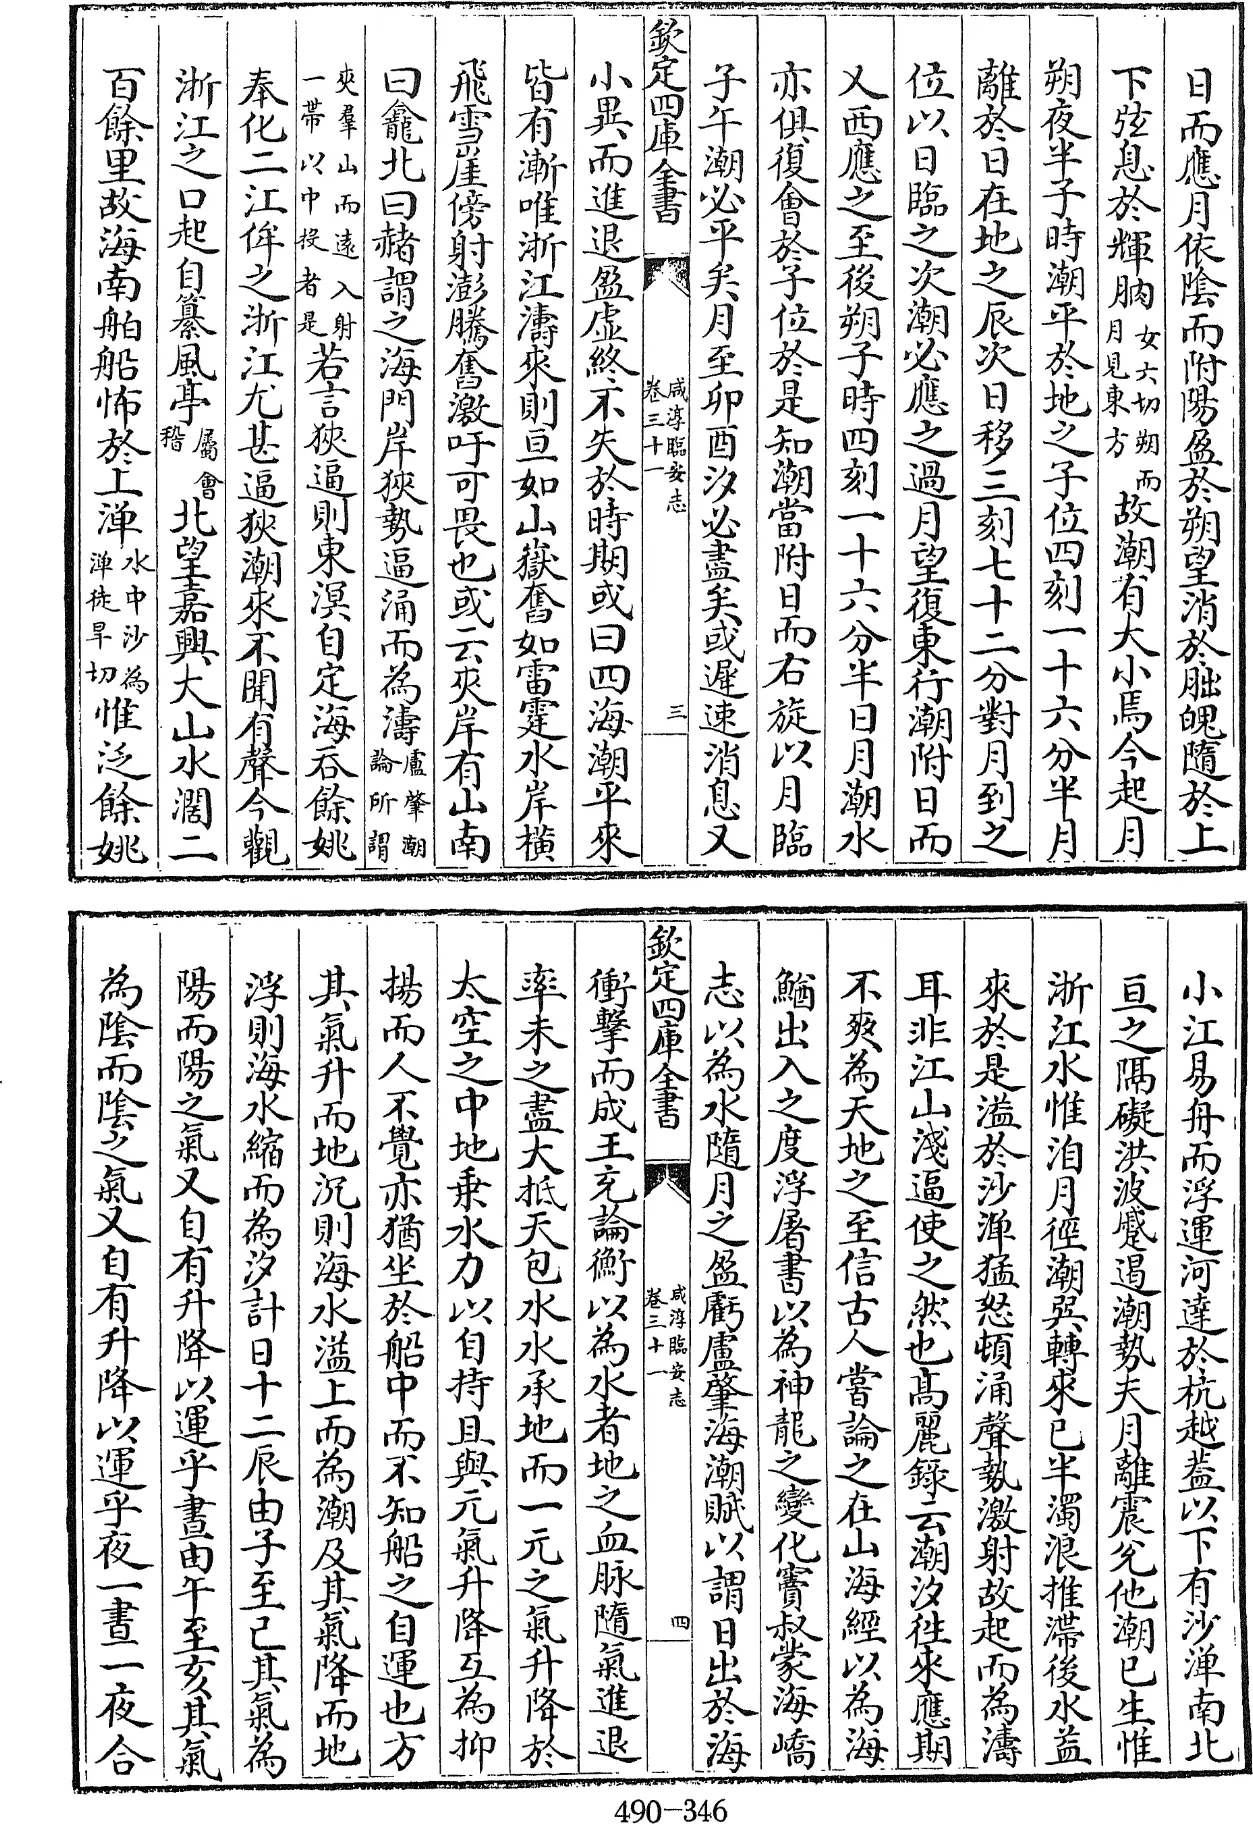 日而應月依陰而附陽盈於朔望消於朏魄隨於上
下弦息於輝朒女六切朔而月見東方故潮有大小焉今起月
朔夜半子時潮平於地之子位四刻一十六分半月
離於日在地之辰次日移三刻七十二分對月到之
位以日臨之次潮必應之過月望復東行潮附日而
又西應之至後朔子時四刻一十六分半日月潮水
亦俱復會於子位於是知潮當附日而右旋以月臨
子午潮必平矣月至卯酉汐必盡矣或遲速消息又
欽定四庫全書
咸淳臨安志
卷三十一
三
小異而進退盈虛終不失於時期或曰四海潮平來
皆有漸唯浙江濤來則亘如山嶽奮如雷霆水岸橫
飛雪崖傍射澎騰奮激吁可畏也或云夾岸有山南
曰龕北曰赭謂之海門岸狹勢逼涌而為濤盧肇潮論所謂
夾羣山而遠入射一帶以中投者是若言狹逼則東溟自定海吞餘姚
奉化二江侔之浙江尤甚逼狹潮來不聞有聲今觀
浙江之口起自纂風亭屬會稽北望嘉興大山水濶二
百餘里故海南舶船怖於上潬水中沙為潬徒旱切惟泛餘姚
小江易舟而浮運河達於杭越蓋以下有沙潬南北
亘之隔礙洪波蹙遏潮勢夫月離震兊他潮已生惟
浙江水惟洎月徑潮㢲轉來已半濁浪推滯後水益
來於是溢於沙潬猛怒頓涌聲勢激射故起而為濤
耳非江山淺逼使之然也髙麗錄云潮汐徃來應期
不爽為天地之至信古人嘗論之在山海經以為海
鰌出入之度浮屠書以為神龍之變化竇叔蒙海嶠
志以為水隨月之盈虧盧肇海潮賦以謂日出於海
欽定四庫全書
咸淳臨安志
卷三十一
四
衝擊而成王充論衡以為水者地之血脉隨氣進退
率未之盡大抵天包水水承地而一元之氣升降於
太空之中地乗水力以自持且與元氣升降互為抑
揚而人不覺亦猶坐於船中而不知船之自運也方
其氣升而地沉則海水溢上而為潮及其氣降而地
浮則海水縮而為汐計日十二辰由子至已其氣為
陽而陽之氣又自有升降以運乎晝由午至亥其氣
為陰而陰之氣又自有升降以運乎夜一晝一夜合
490-346